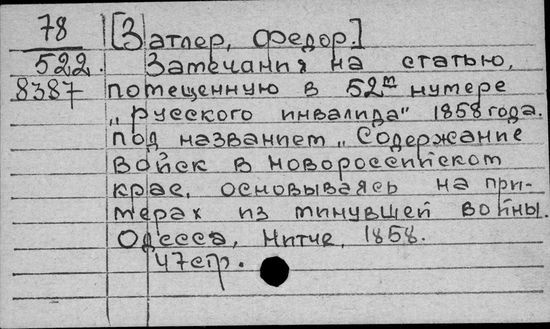 78 [Затлер, Федор.]
522. Замечания на статью,
8387 помещенную в 52м нумере
„Русского инвалида" 1858 года.
под названием „Содержание
войск в новороссийском
крае, основываясь на при-
мерах из минувшей войны.
Одесса, Нитче, 1858.
47стр.